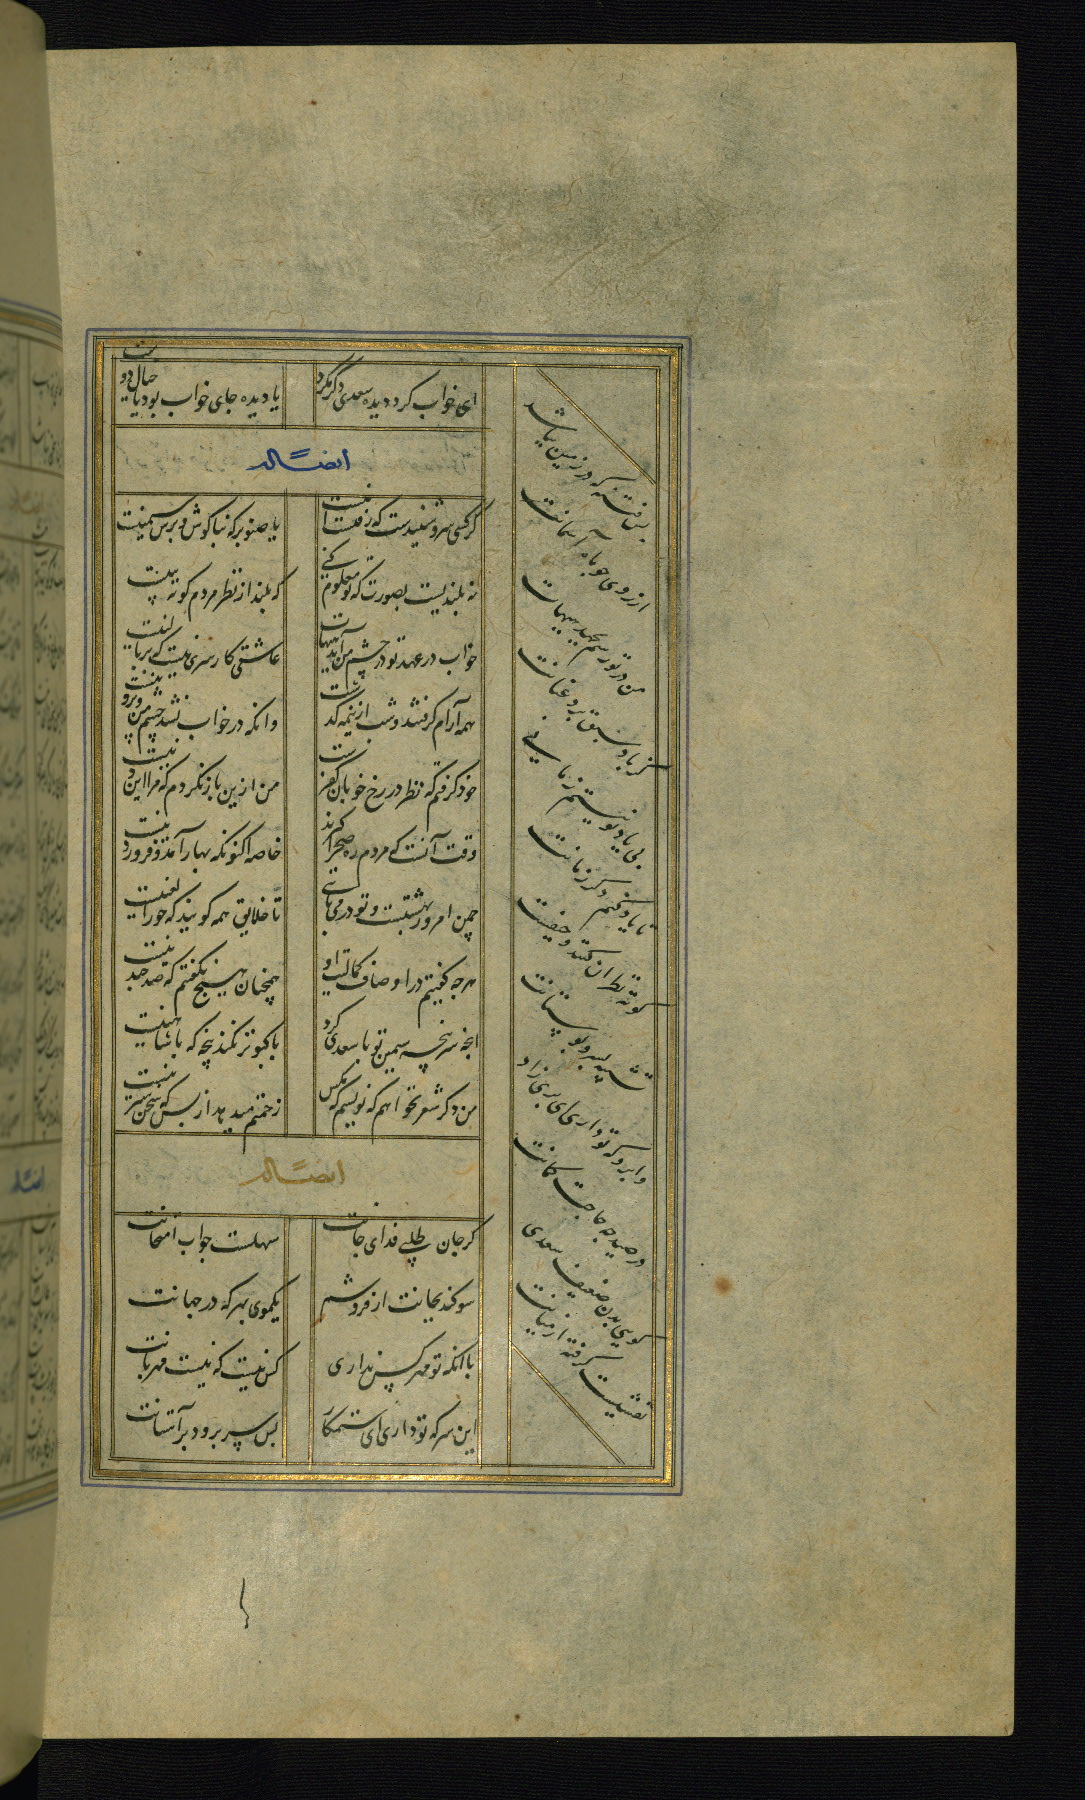 ای خواب گرد دیده سعدی دگر مگرد
یا دیده جای خواب بود یا خیال دوست
ایضاً له
گر کسی سرو شنیدست که رفتست اینست
یا صنوبر که بناگوش و برش سیمینست
نه بلندیست بصورت که تو معلوم کنی
که بلند از نظر مردم کوته بینست
خواب در عهد تو در چشم من آید هیهات
عاشقی کار سری نیست که بر بالینست
همه آرام گرفتند و شب از نیمه گذشت
وانکه در خواب نشد چشم من و پروینست
خود گرفتم که نظر در رخ خوبان کفرست
من ازین باز نگردم که مرا این دینست
وقت آنست که مردم ره صحرا گیرند
خاصه اکنون که بهار آمد و فروردینست
چمن امروز بهشتست و تو در می بائی
تا خلایق همه گویند که حورالعینست
هرچه گفتیم در اوصاف کمالیت او
همچنان هیچ نگفتیم که صد چندینست
انچه سرپنجه سیمین تو با سعدی کرد
با کبوتر نکند پنجه که با شاهینست
من دگر شعر نخواهم که نویسم که مگس
زحمتم میدهد از بس که سخن شیرینست
ایضاً له
گر جان طلبی فدای جانت
سهلست جواب امتحانت
سوگند بجانت ار فروشم
یکموی بهر که در جهانت
با آنکه تو مهر کس نداری
کس نیست که نیست مهربانت
این سر که تو داری ای ستمکار
بس سر برود بر آستانت
بس فتنه که در زمین باشد
از روی چو ماه آسمانت
من در تو رسم بجهد هیهات
کز باد سبق برد عنانت
بی یاد تو نیستم زمانی
تا یاد کنم دگر زمانت
کوته نظران کنند و حیفست
تشبیه بسرو بوستانت
و ابرو که تو داری ای پری زاد
در صید چه حاجت کمانت
گوئی بدن ضعیف سعدی
نقشیست گرفته از میانت